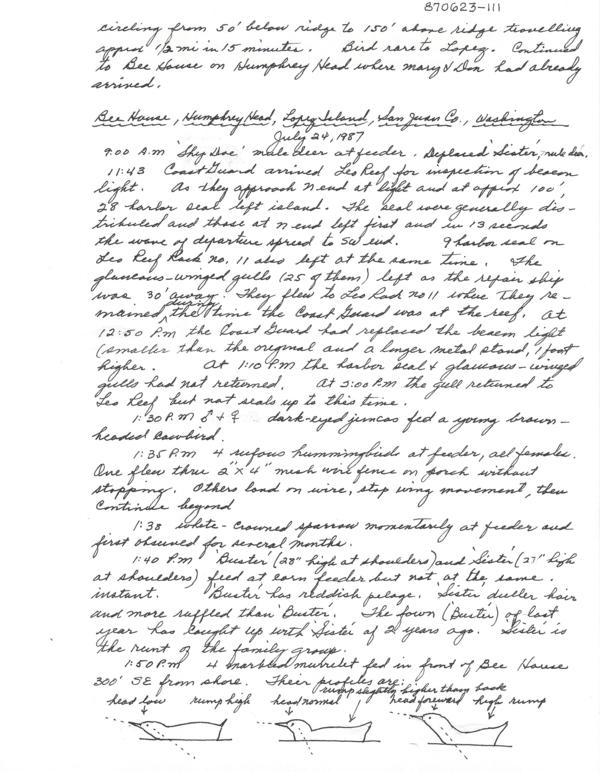 870623-111
circling from 50' below ridge to 150' above ridge travelling
approx 1/2 mi in 15 minutes. Bird rare to Lopez. Continued
to Bee House on Humphrey Head where Mary & Don had already
arrived.
Bee House, Humphrey Head, Lopez Island, San Juan Co., Washington
July 24, 1987
9:00 A.M 'Shy Doe' mule deer at feeder. Displaced 'Sister', mule deer.
11:43 Coast Guard arrived Leo Reef for inspection of beacon
light. As they approach N end at light and at approx 100',
28 harbor seal left island. The seal were generally dis-
tributed and those at n end left first and in 13 seconds
the wave of departure spread to SW end. 9 harbor seal on
Leo Reef Rock no. 11 also left at the same time. The
glaucous-winged gulls (25 of them) left as the repair ship
was 30' away. They flew to Leo Rock no 11 where they re-
mained during the time the Coast Guard was at the reef. At
12:50 P.M the Coast Guard had replaced the beacon light
(smaller than the original and a longer metal stand, 1 foot
higher. At 1:10 P.M the harbor seal & glaucous-winged
gulls had not returned. At 5:00 P.M the gull returned to
Leo Reef but not seals up to this time.
1:30 P.M ♂ + ♀ dark-eyed juncos fed a young brown-
headed cowbird.
1:35 P.M 4 rufous hummingbirds at feeder, all females.
One flew thru 2" x 4" mesh wire fence on porch without
stopping. Others land on wire, stop wing movement, then
continue beyond
1:38 white-crowned sparrow momentarily at feeder and
first observed for several months.
1:40 P.M 'Buster' (28" high at shoulders) and 'Sister' (27" high
at shoulders) feed at corn feeder but not at the same
instant. 'Buster' has reddish pelage. 'Sister' duller hair
and more ruffled than 'Buster'. The fawn (Buster) of last
year has caught up with 'Sister' of 2 years ago. 'Sister' is
the runt of the family group.
1:50 P.M 4 marbled murrelet fed in front of Bee House
300' SE from shore. Their profiles are:
rump slightly higher than back
head low rump high head normal head foreward high rump